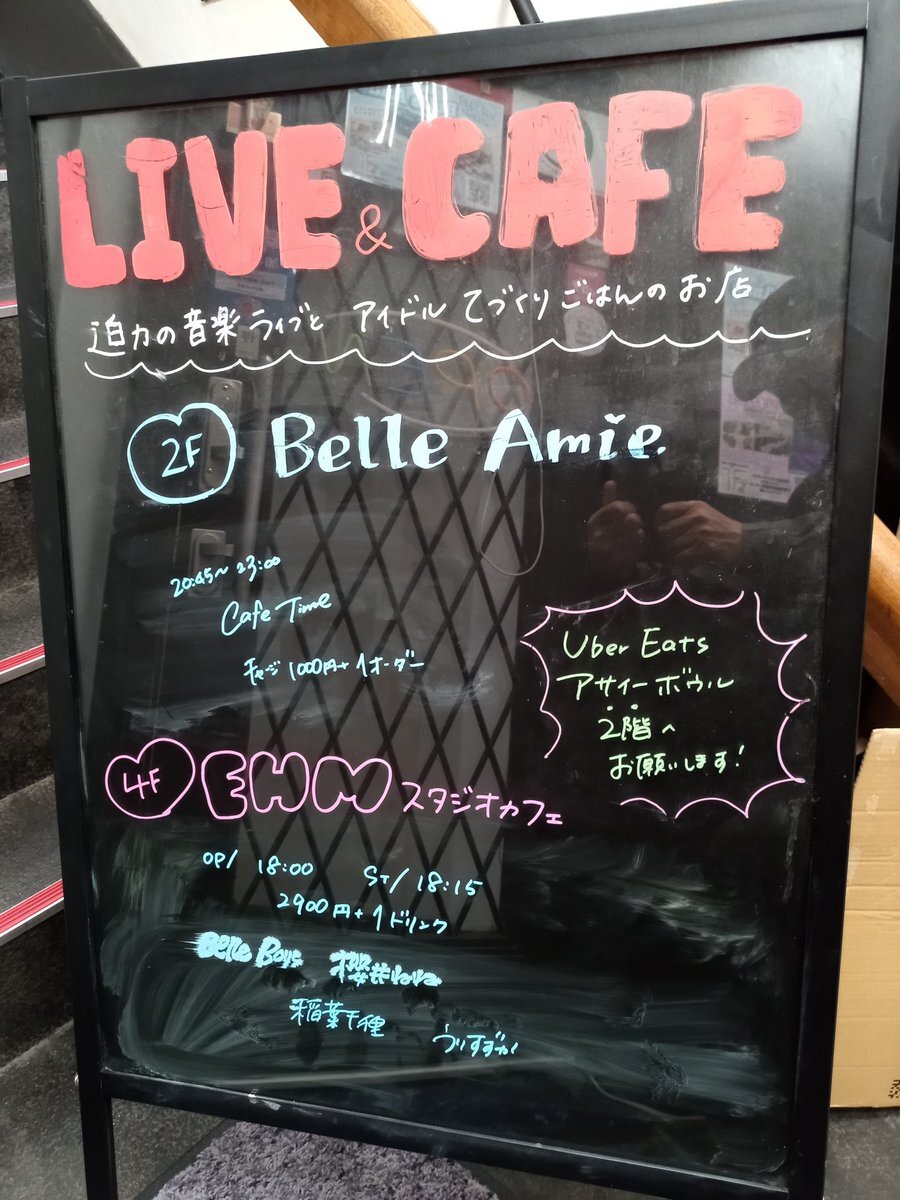 LIVE & CAFE
迫力の音楽ライブと アイドル てづくりごはんのお店
2F Belle Amie.
20:45～23:00
Cafe Time
チャージ 1000円+1オーダー
Uber Eats
アサイーボウル
2階へ
お願いします!
4F EHM スタジオカフェ
OP/ 18:00 ST/ 18:15
2900円+1ドリンク
Belle Boys 櫻井
稲葉千種